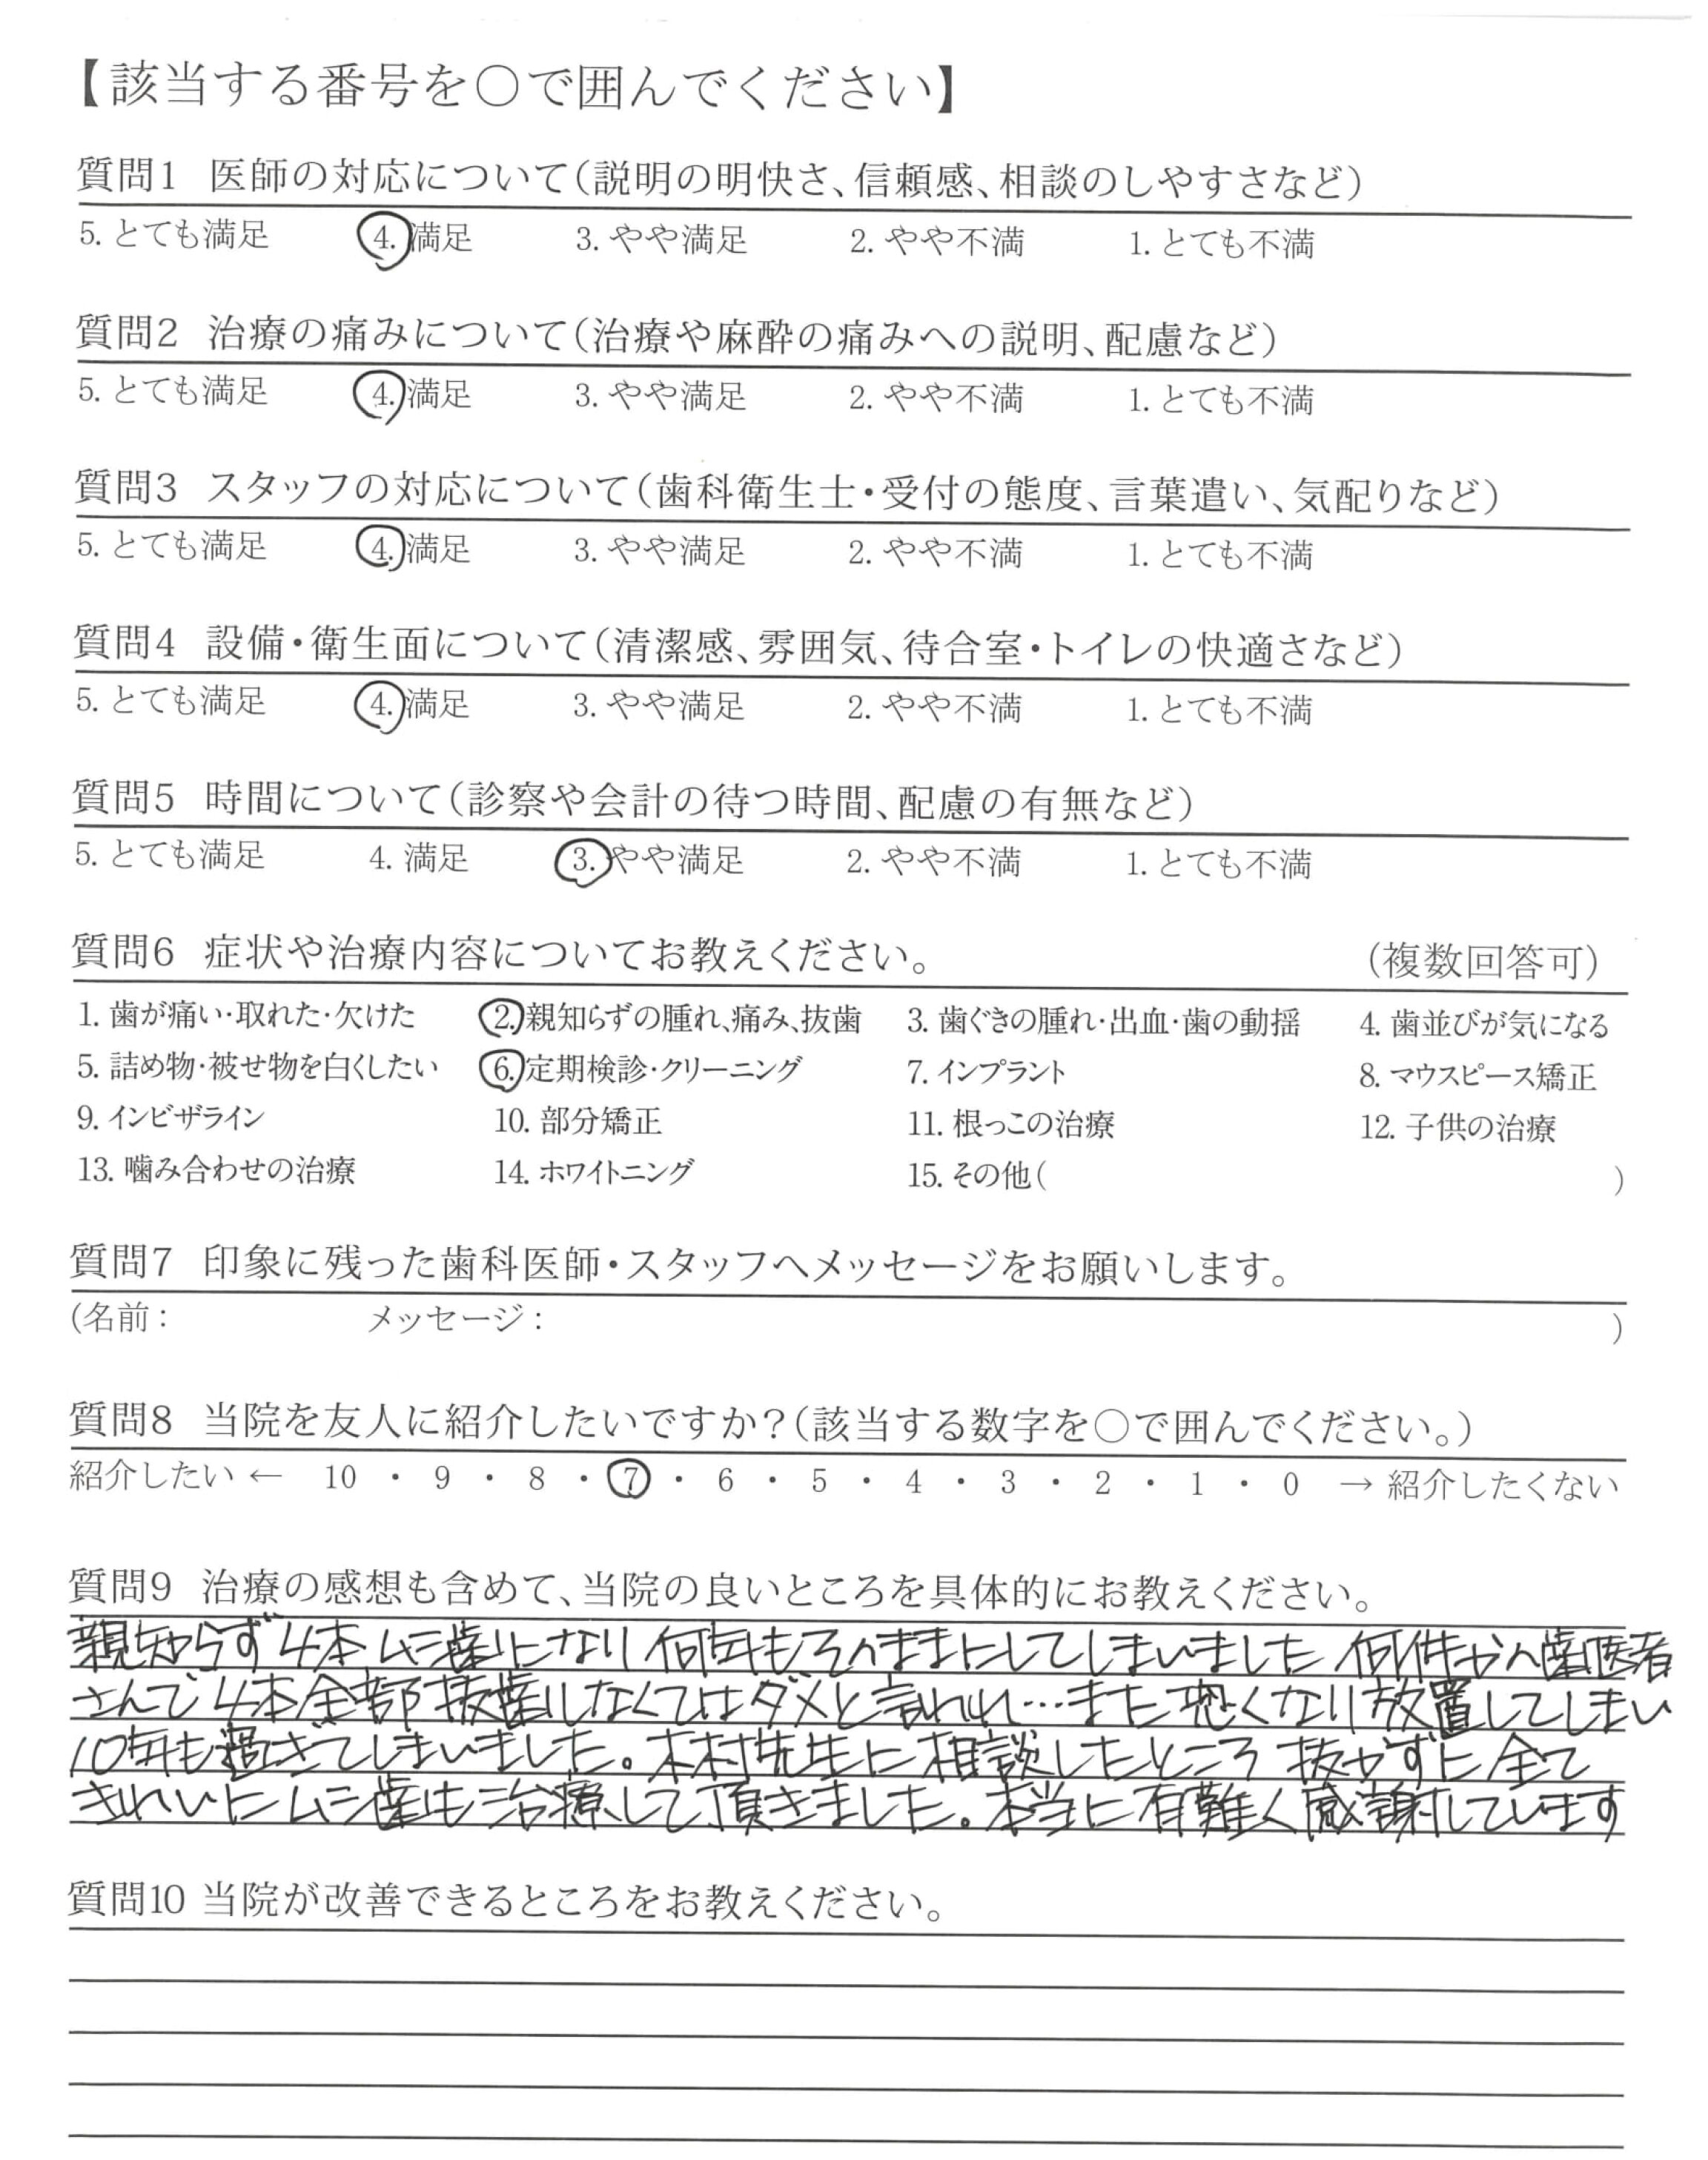 【該当する番号を○で囲んでください】
質問1 医師の対応について(説明の明快さ、信頼感、相談のしやすさなど)
5. とても満足 4. 満足 3. やや満足 2. やや不満 1. とても不満
質問2 治療の痛みについて(治療や麻酔の痛みへの説明、配慮など)
5. とても満足 4. 満足 3. やや満足 2. やや不満 1. とても不満
質問3 スタッフの対応について(歯科衛生士・受付の態度、言葉遣い、気配りなど)
5. とても満足 4. 満足 3. やや満足 2. やや不満 1. とても不満
質問4 設備・衛生面について(清潔感、雰囲気、待合室・トイレの快適さなど)
5. とても満足 4. 満足 3. やや満足 2. やや不満 1. とても不満
質問5 時間について(診察や会計の待つ時間、配慮の有無など)
5. とても満足 4. 満足 3. やや満足 2. やや不満 1. とても不満
質問6 症状や治療内容についてお教えください。 (複数回答可)
1. 歯が痛い・取れた・欠けた 2. 親知らずの腫れ、痛み、抜歯 3. 歯ぐきの腫れ・出血・歯の動揺 4. 歯並びが気になる
5. 詰め物・被せ物を白くしたい 6. 定期検診・クリーニング 7. インプラント 8. マウスピース矯正
9. インビザライン 10. 部分矯正 11. 根っこの治療 12. 子供の治療
13. 噛み合わせの治療 14. ホワイトニング 15. その他( )
質問7 印象に残った歯科医師・スタッフへメッセージをお願いします。
(名前: メッセージ: )
質問8 当院を友人に紹介したいですか?(該当する数字を○で囲んでください。)
紹介したい ← 10 ・ 9 ・ 8 ・ 7 ・ 6 ・ 5 ・ 4 ・ 3 ・ 2 ・ 1 ・ 0 → 紹介したくない
質問9 治療の感想も含めて、当院の良いところを具体的にお教えください。
親知らず4本ムシ歯になり何年もそのままにしてしまいました 何件かの歯医者
さんで4本全部抜歯しなくてはダメと言われ…また恐くなり放置してしまい
10年も過ぎてしまいました。木村先生に相談したところ 抜かずに全て
きれいにムシ歯も治療して頂きました。本当に有難く感謝しています
質問10 当院が改善できるところをお教えください。